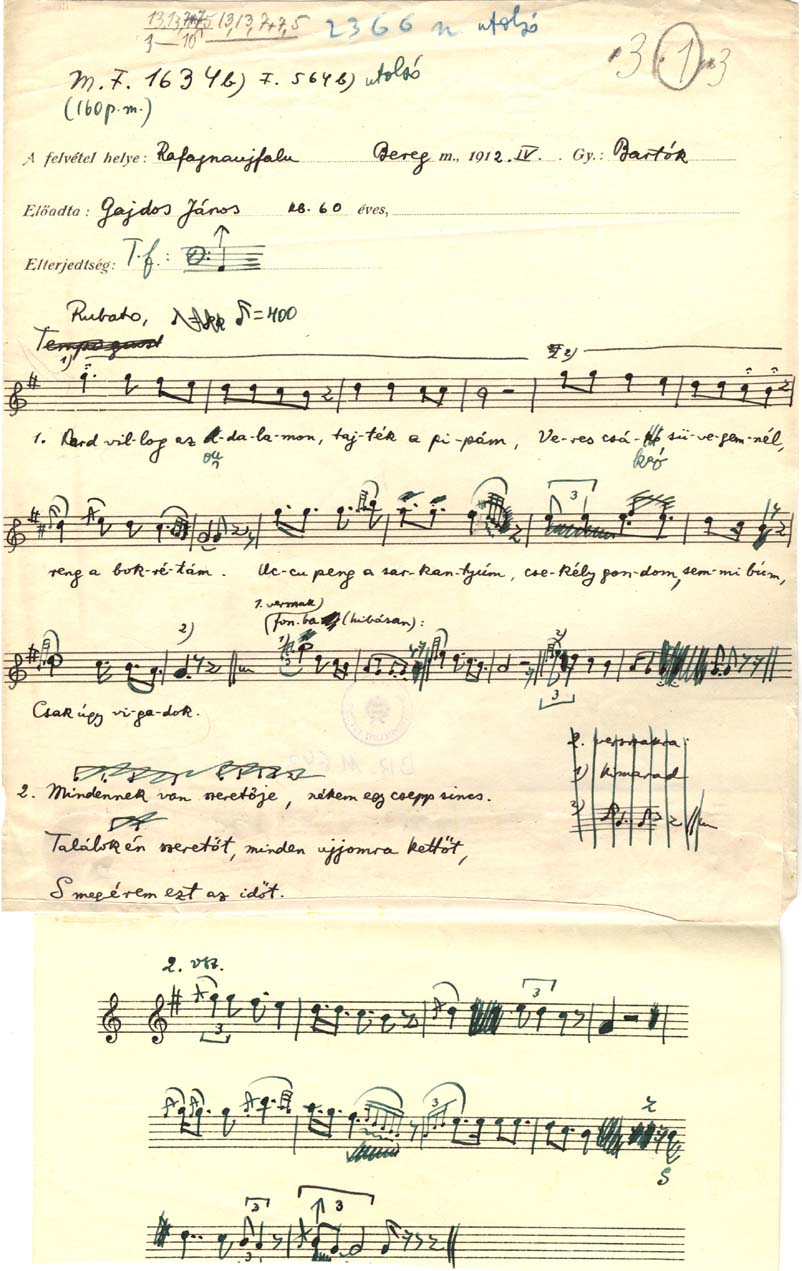 13,13,7+7,5 13,13,7+7,5
1—10
2366 n utolsó
3 1 3
M.F. 1634b) F. 564b) utolsó
(160 p.m.)
A felvétel helye: Rafajnaujfalu Bereg m., 1912. IV. Gy.: Bartók
Előadta: Gajdos János kb. 60 éves,
Elterjedtség: T.f.:
Rubato, ♪=400
Tempo giusto
1) 2)
1. Kard vil-log az ol-da-la-mon, taj-ték a pi-pám, Ve-res csá-kó sü-ve-gem-nél,
3
reng a bok-ré-tám. Uc-cu peng a sar-kan-tyúm, cse-kély gon-dom, sem-mi búm,
1. versszak)
2) (fon. ba (hibásan):
3 3
Csak úgy vi-ga-dok.
2. versszakra:
1) kimarad
2)
2. Mindennek van szeretője, nékem egy csepp sincs.
Találok én szeretőt, minden ujjomra kettőt,
S megérem ezt az időt.
2. vsz.
3 3
3
S
3 3
3